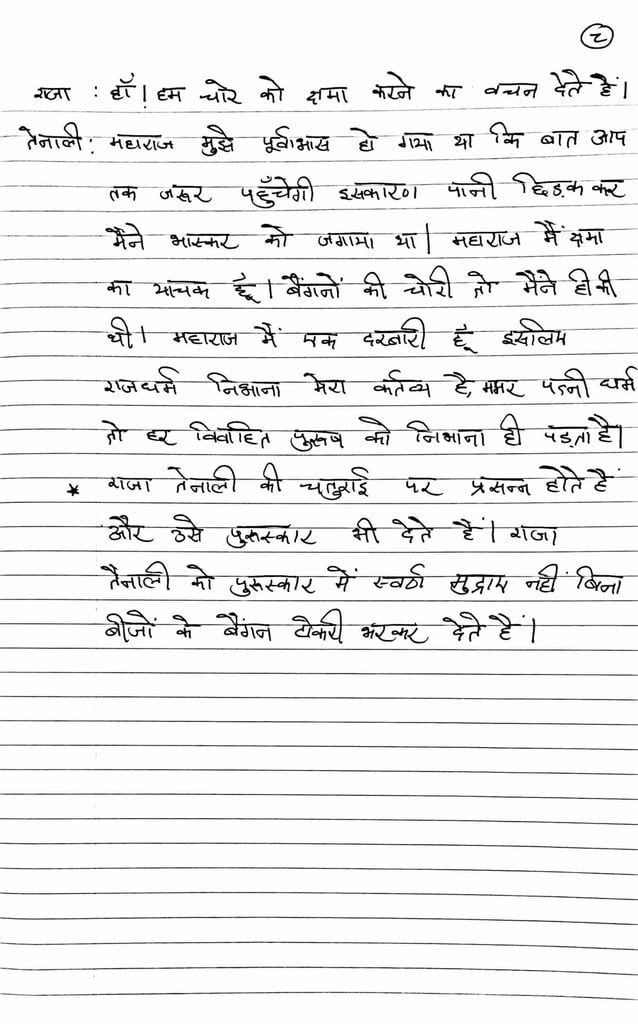 ८
राजा : हाँ! हम चोर को क्षमा करने का वचन देते हैं।
तेनाली : महाराज मुझे पूर्वाभास हो गया था कि बात आप
तक जरूर पहुँचेगी इसकारण पानी छिड़क कर
मैने भास्कर को जगाया था। महाराज मैं क्षमा
का याचक हूँ। बैंगनों की चोरी तो मैंने ही की
थी। महाराज मैं एक दरबारी हूँ इसलिए
राजधर्म निभाना मेरा कर्तव्य है, मगर पत्नी धर्म
तो हर विवाहित पुरूष को निभाना ही पड़ता है।
* राजा तेनाली की चतुराई पर प्रसन्न होते हैं
और उसे पुरूस्कार भी देते हैं। राजा
तेनाली को पुरूस्कार में स्वर्ण मुद्राए नहीं बिना
बीजों के बैंगन टोकरी भरकर देते हैं।